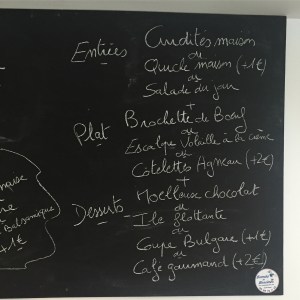 Entrées Crudités maison
ou
Quiche maison (+1€)
ou
Salade du jour
+
Plat Brochette de Boeuf
ou
Escalope Volaille à la crème
ou
Côtelettes Agneau (+2€)
+
Desserts Moelleux chocolat
ou
Ile flottante
ou
Coupe Bulgare (+1€)
ou
Café gourmand (+2€)
Balsamique
+1€